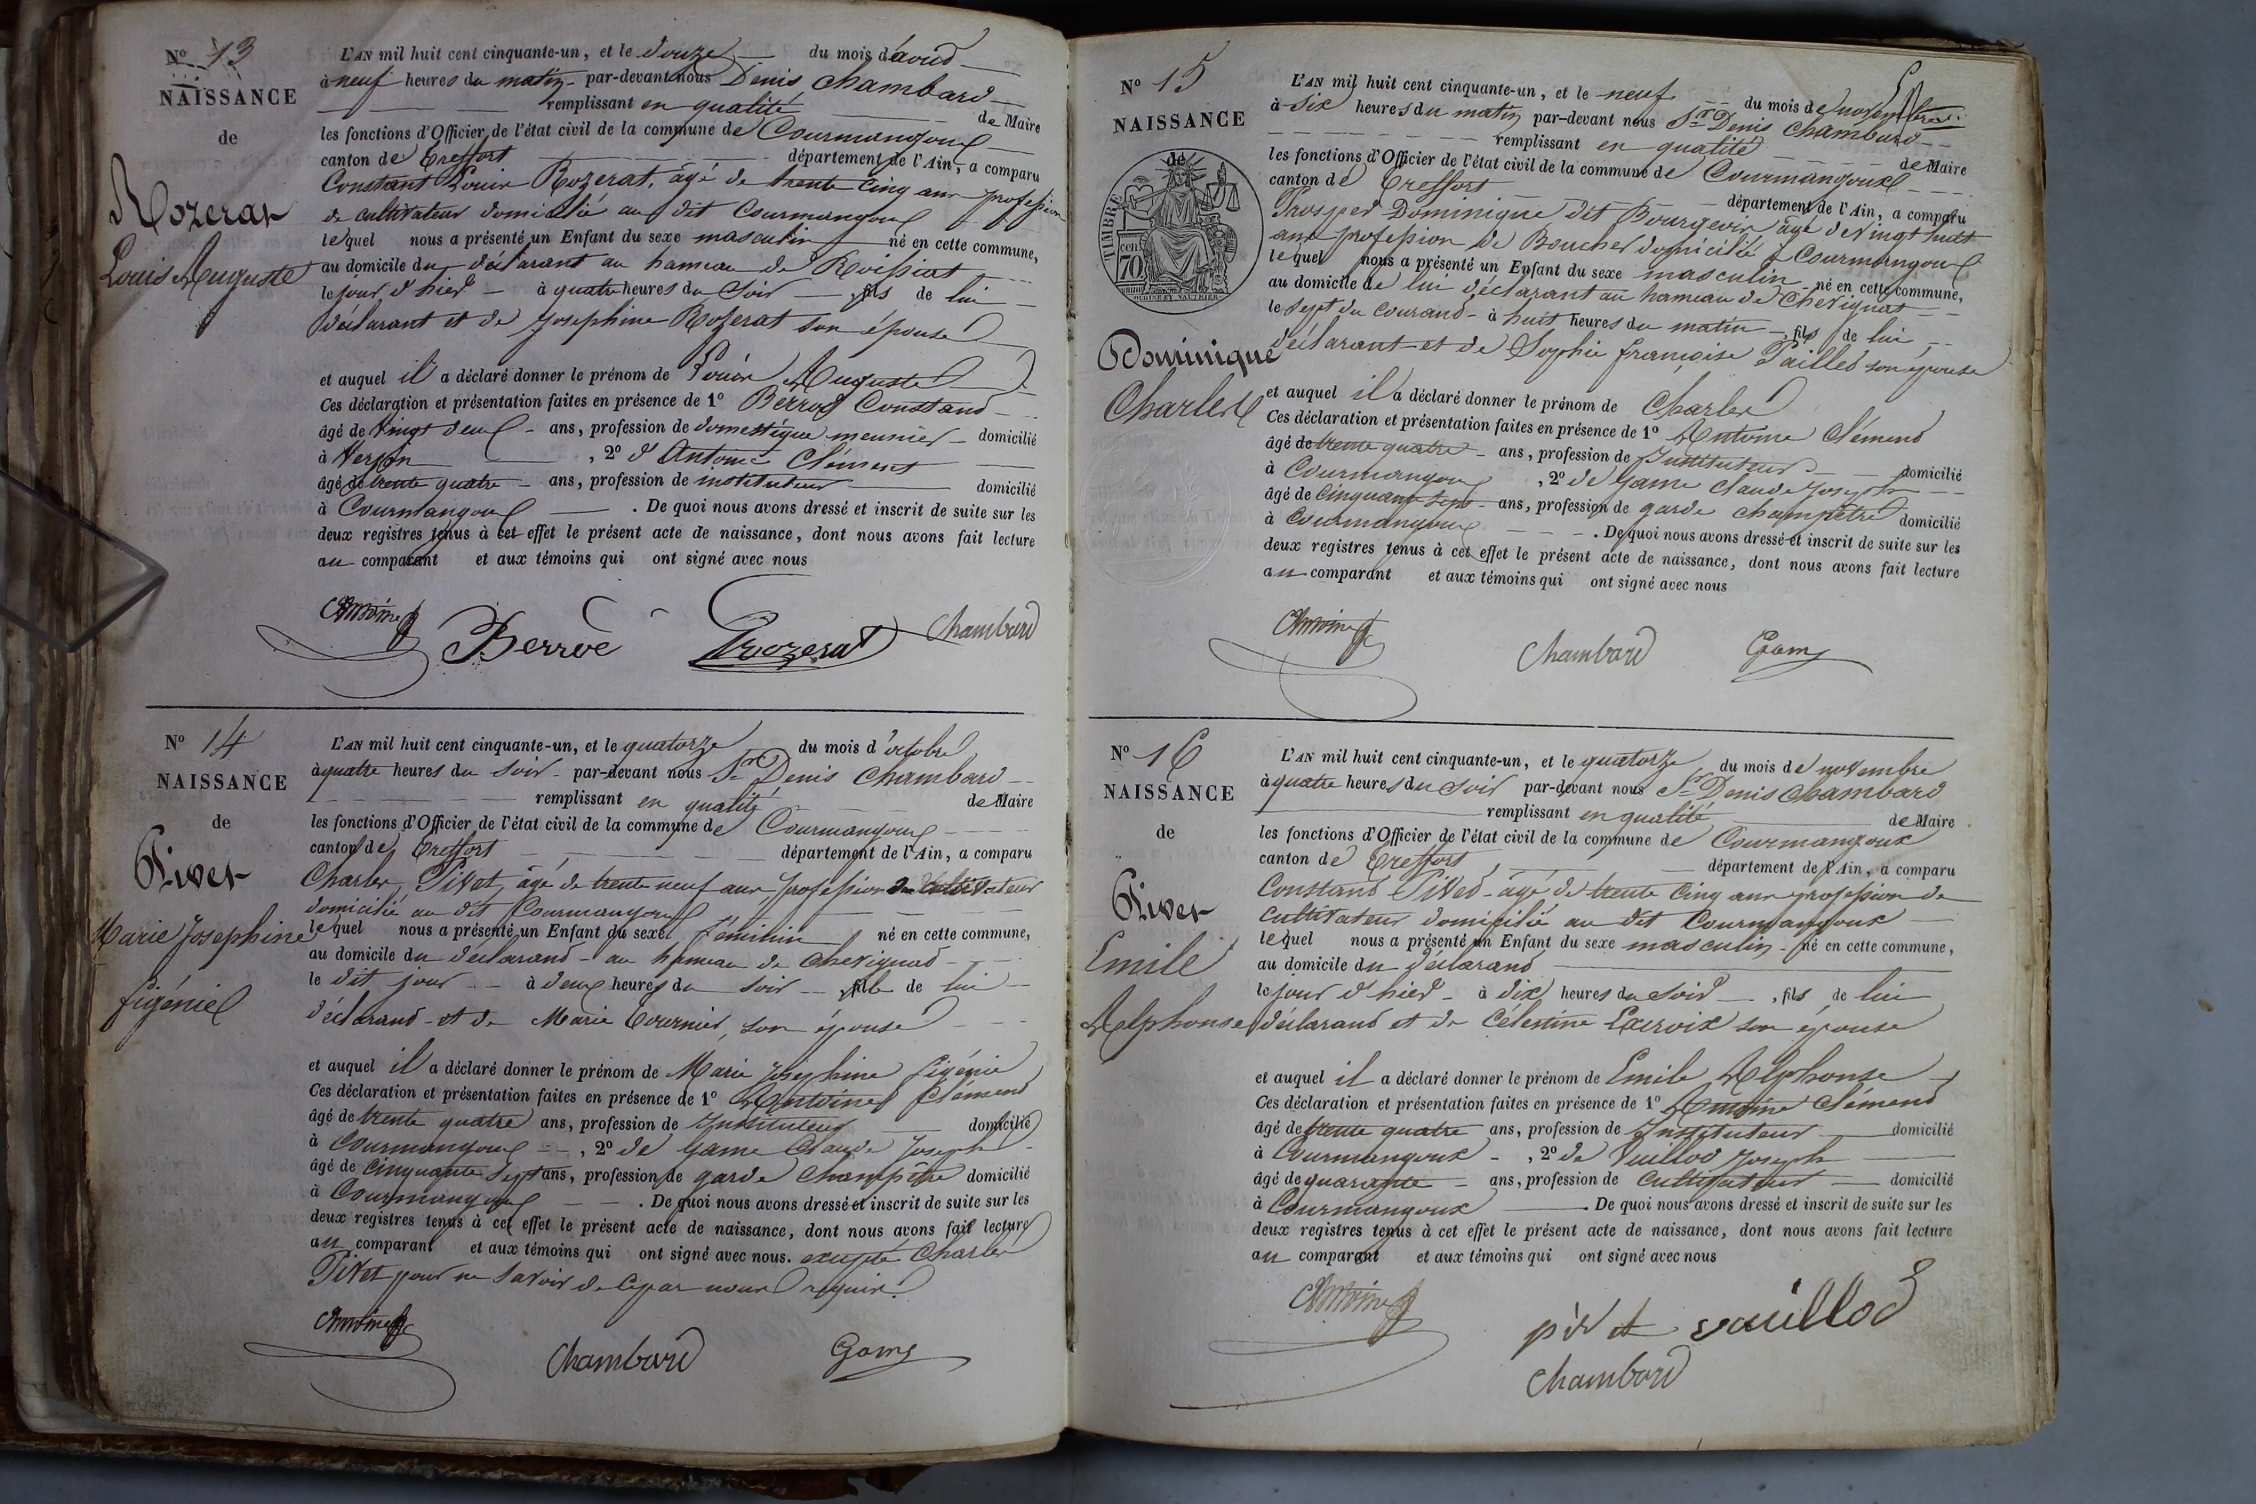 Nº 13
NAISSANCE
de
Rozerat
Louis Auguste
L'AN mil huit cent cinquante-un, et le douze du mois d'aoud
à neuf heures du matin par-devant nous Denis Chambard
remplissant en qualité de Maire
les fonctions d'Officier de l'état civil de la commune de Courmangoux
canton de Treffort département de l'Ain, a comparu
Constant Louis Rozerat, âgé de trente cinq ans profession
de cultivateur domicilié au dit Courmangoux
lequel nous a présenté un Enfant du sexe masculin né en cette commune,
au domicile du déclarant au hameau de Roissiat
le jour d'hier à quatre heures du soir fils de lui
déclarant et de Josephine Rozerat son épouse
et auquel il a déclaré donner le prénom de Louis Auguste
Ces déclaration et présentation faites en présence de 1º Berrod Constand
âgé de vingt deux ans, profession de domestique meunier domicilié
à Verjon, 2º d'Antoine Clément
âgé de trente quatre ans, profession de instituteur domicilié
à Courmangoux. De quoi nous avons dressé et inscrit de suite sur les
deux registres tenus à cet effet le présent acte de naissance, dont nous avons fait lecture
au comparant et aux témoins qui ont signé avec nous
Antoine Berrod Rozerat Chambard
Nº 14
NAISSANCE
de
Pivet
Marie Josephine
figénie
L'AN mil huit cent cinquante-un, et le quatorze du mois d'octobre
à quatre heures du soir par-devant nous Sr Denis Chambard
remplissant en qualité de Maire
les fonctions d'Officier de l'état civil de la commune de Courmangoux
canton de Treffort département de l'Ain, a comparu
Charles Pivet, âgé de trente neuf ans, profession de cultivateur
domicilié au dit Courmangoux
lequel nous a présenté un Enfant du sexe féminin né en cette commune,
au domicile du déclarand au hameau de Chevignad
le dit jour à deux heures du soir fille de lui
déclarand et de Marie Tournier, son épouse
et auquel il a déclaré donner le prénom de Marie Josephine figénie
Ces déclaration et présentation faites en présence de 1º Antoine Clémend
âgé de trente quatre ans, profession de Instituteur domicilié
à Courmangoux, 2º de Game Claude Joseph
âgé de cinquante sept ans, profession de garde champêtre domicilié
à Courmangoux. De quoi nous avons dressé et inscrit de suite sur les
deux registres tenus à cet effet le présent acte de naissance, dont nous avons fait lecture
au comparant et aux témoins qui ont signé avec nous. excepté Charles
Pivet pour ne savoir de ce par nous requis.
Antoine Chambard Game
Nº 15
NAISSANCE
de
TIMBRE
70 cen
Dominique
Charles
L'AN mil huit cent cinquante-un, et le neuf du mois de novembre
à six heures du matin par-devant nous Sr Denis Chambard
remplissant en qualité de Maire
les fonctions d'Officier de l'état civil de la commune de Courmangoux
canton de Treffort département de l'Ain, a comparu
Prosper Dominique dit Bourgeois âgé de vingt huit
ans profession de Boucher domicilié à Courmangoux
lequel nous a présenté un Enfant du sexe masculin né en cette commune,
au domicile de lui déclarant au hameau de Chevignat
le sept du courand à huit heures du matin fils de lui
déclarant et de Sophie françoise Paillet son épouse
et auquel il a déclaré donner le prénom de Charles
Ces déclaration et présentation faites en présence de 1º Antoine Clémend
âgé de trente quatre ans, profession de Instituteur domicilié
à Courmangoux, 2º de Game Claude Joseph
âgé de cinquante sept ans, profession de garde champêtre domicilié
à Courmangoux. De quoi nous avons dressé et inscrit de suite sur les
deux registres tenus à cet effet le présent acte de naissance, dont nous avons fait lecture
au comparant et aux témoins qui ont signé avec nous
Antoine Chambard Game
Nº 16
NAISSANCE
de
Pivet
Emile
Alphonse
L'AN mil huit cent cinquante-un, et le quatorze du mois de novembre
à quatre heures du soir par-devant nous Sr Denis Chambard
remplissant en qualité de Maire
les fonctions d'Officier de l'état civil de la commune de Courmangoux
canton de Treffort département de l'Ain, a comparu
Constand Pived âgé de trente cinq ans profession de
cultivateur domicilié au dit Courmangoux
lequel nous a présenté un Enfant du sexe masculin né en cette commune,
au domicile du déclarand
le jour d'hier à dix heures du soir, fils de lui
déclarand et de Célestine Lacroix son épouse
et auquel il a déclaré donner le prénom de Emile Alphonse
Ces déclaration et présentation faites en présence de 1º Antoine Clémend
âgé de trente quatre ans, profession de Instituteur domicilié
à Courmangoux, 2º de Vuillod Joseph
âgé de quarante ans, profession de cultivateur domicilié
à Courmangoux. De quoi nous avons dressé et inscrit de suite sur les
deux registres tenus à cet effet le présent acte de naissance, dont nous avons fait lecture
au comparant et aux témoins qui ont signé avec nous
Antoine pivet vuillod
Chambard